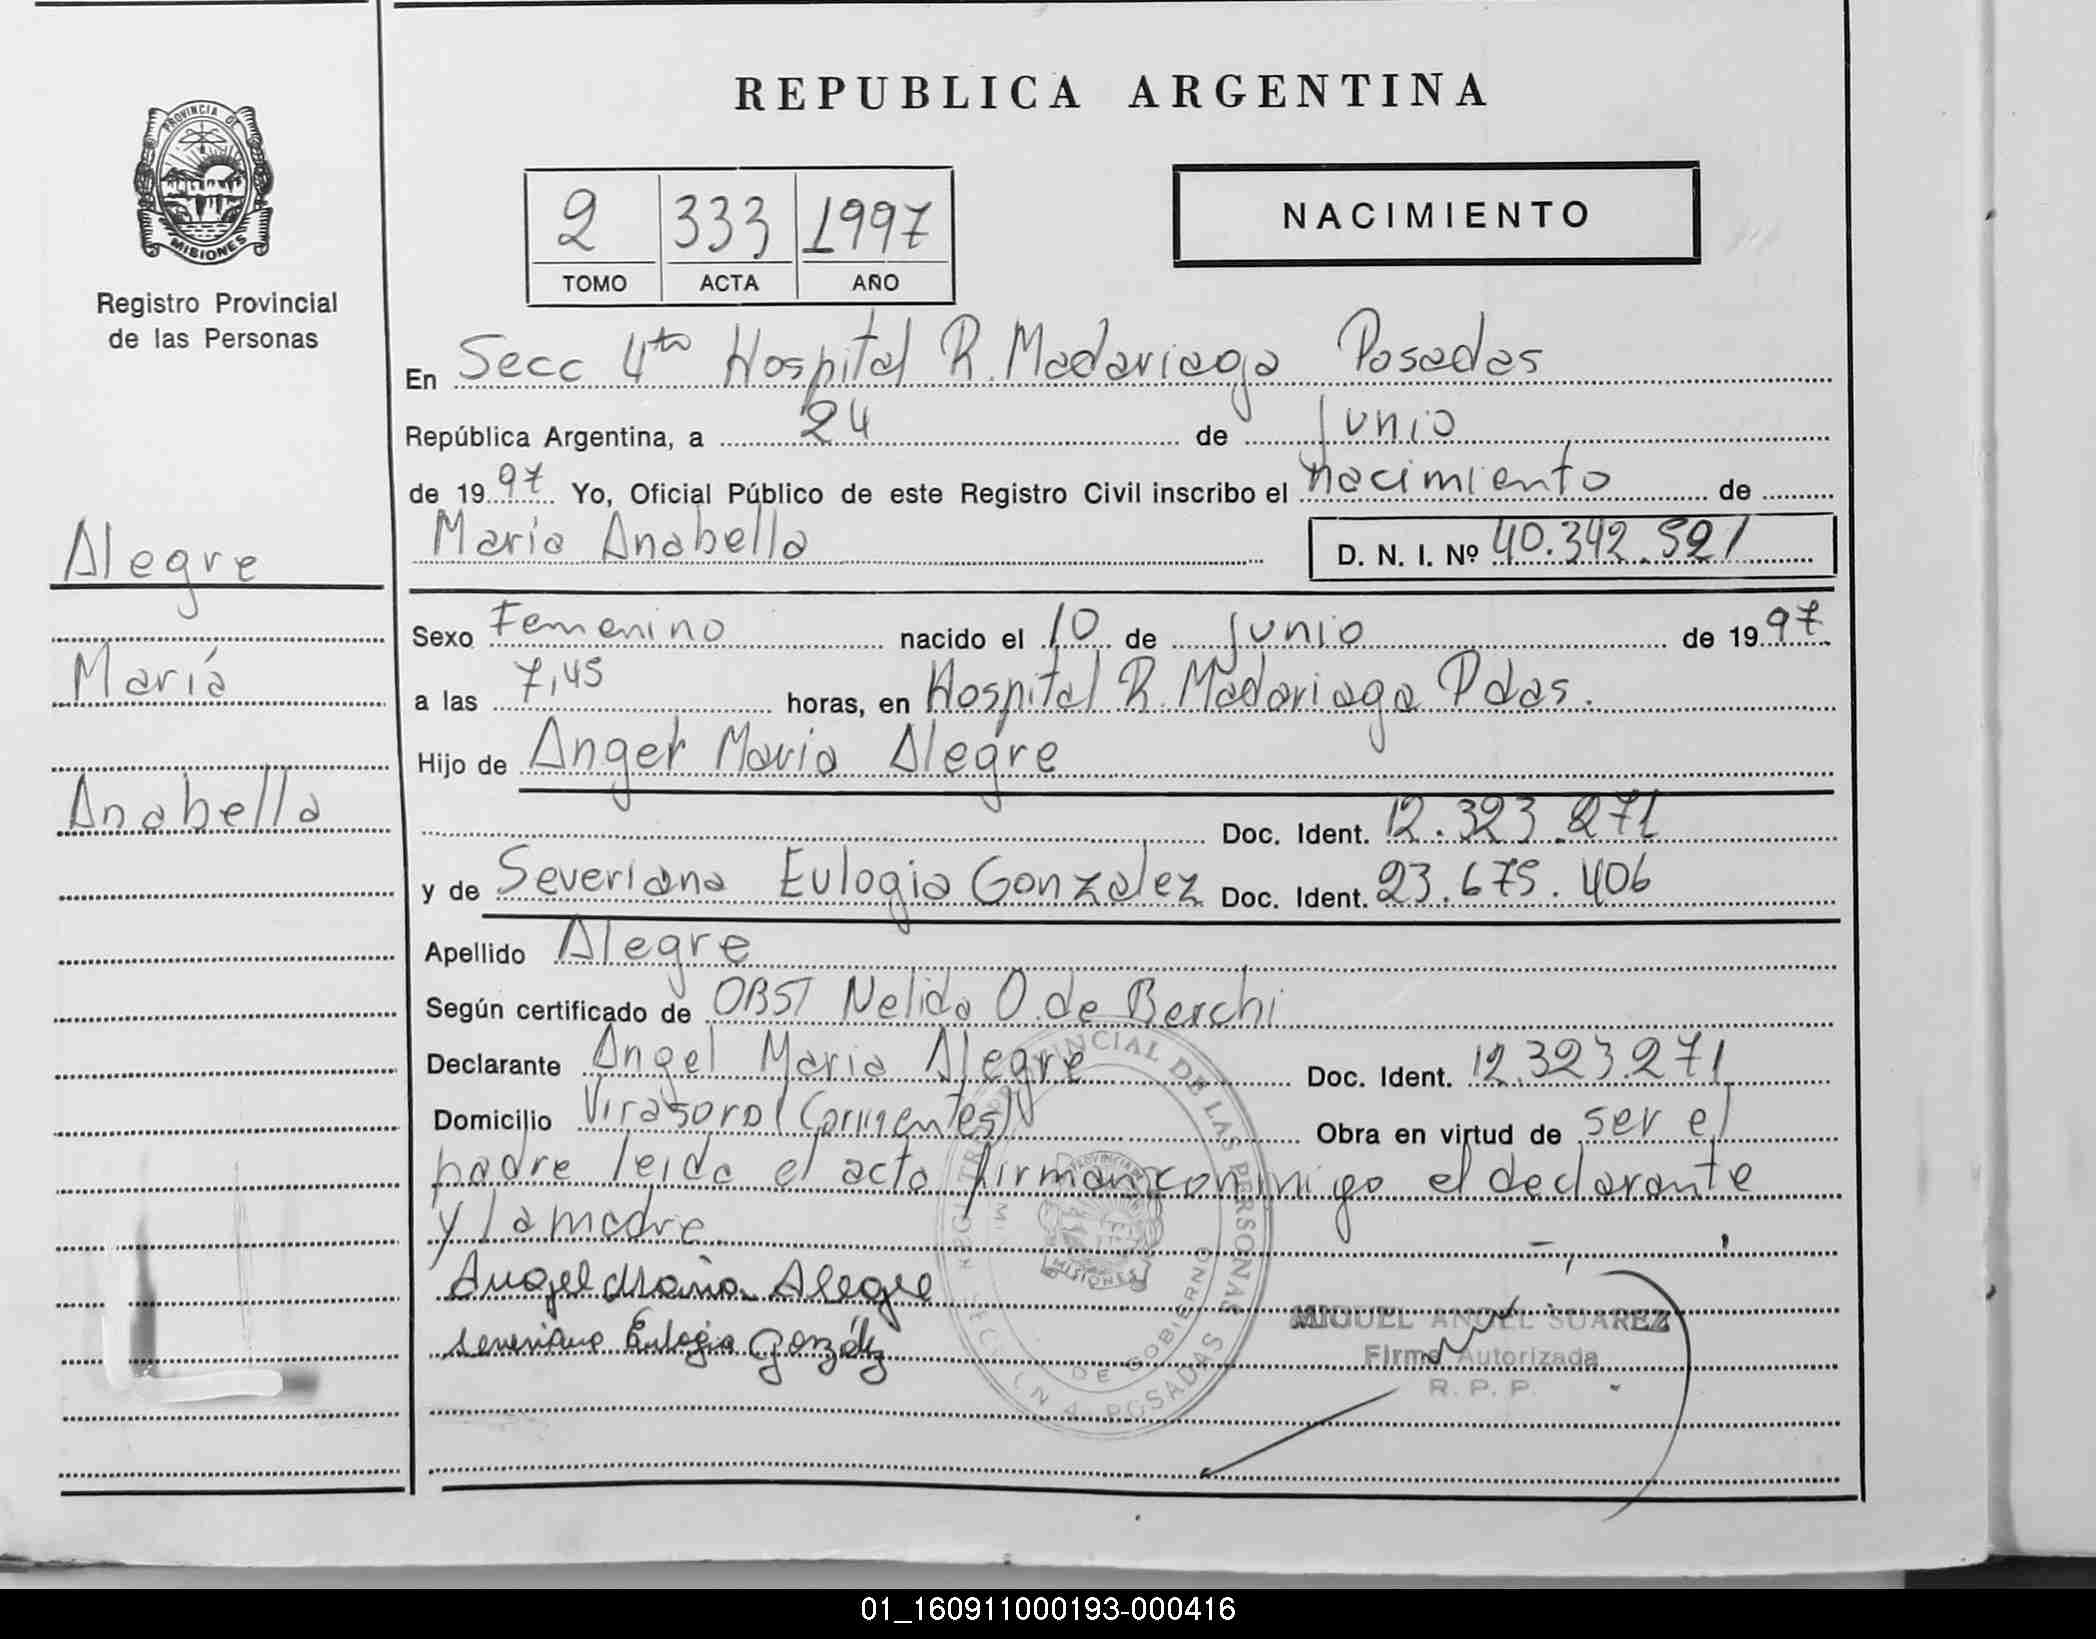 REPUBLICA ARGENTINA
PROVINCIA DE
MISIONES
Registro Provincial
de las Personas
2 333 1997
TOMO ACTA AÑO
NACIMIENTO
En Secc 4ta Hospital R. Madariaga Posadas
República Argentina, a 24 de Junio
de 1997 Yo, Oficial Público de este Registro Civil inscribo el nacimiento de
Maria Anabella D. N. I. Nº 40.342.521
Alegre
María
Anabella
Sexo Femenino nacido el 10 de Junio de 1997
a las 7,45 horas, en Hospital R. Madariaga Pdas.
Hijo de Angel Maria Alegre
Doc. Ident. 12.323.271
y de Severiana Eulogia Gonzalez Doc. Ident. 23.675.406
Apellido Alegre
Según certificado de OBST Nelida O. de Berchi
Declarante Angel Maria Alegre Doc. Ident. 12.323.271
Domicilio Virasoro (Corrientes) Obra en virtud de ser el
padre leida el acta firman conmigo el declarante
y la madre.
Angel Maria Alegre
Severiana Eulogia González
MIGUEL ANGEL SUAREZ
Firma Autorizada
R. P. P.
PROVINCIAL DE LAS PERSONAS
MISIONES
DE GOBIERNO
POSADAS
01_160911000193-000416